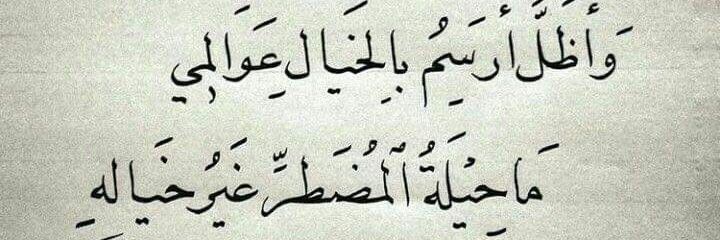 وَأَظَلُّ أَرسِمُ بِالخَيَالِ عَوَالِمِي
مَا حِيْلَةُ المُضطَرِّ غَيْرُ خَيالِهِ